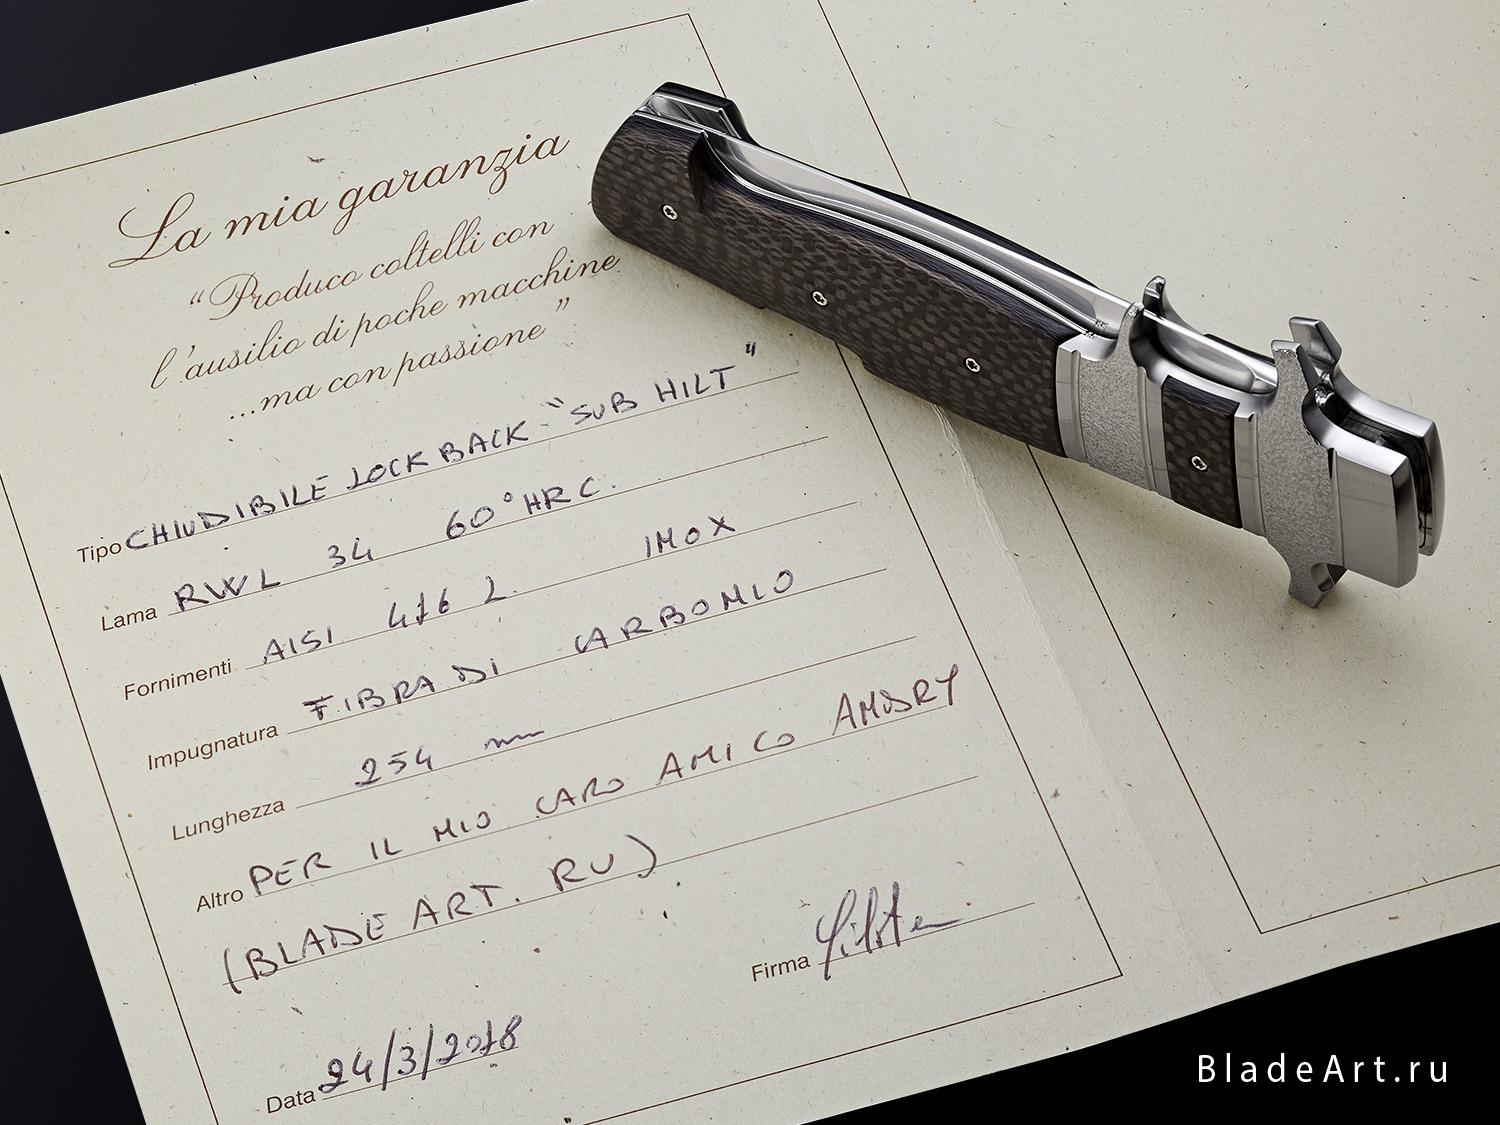 La mia garanzia
“Produco coltelli con
l'ausilio di poche macchine
...ma con passione”
Tipo CHIUDIBILE LOCK BACK "SUB HILT"
Lama RWL 34 60° HRC.
Fornimenti AISI 416 L INOX
Impugnatura FIBRA DI CARBONIO
Lunghezza 254 mm
Altro PER IL MIO CARO AMICO
(BLADE ART. RU)
Firma
Data 24/3/2018
BladeArt.ru